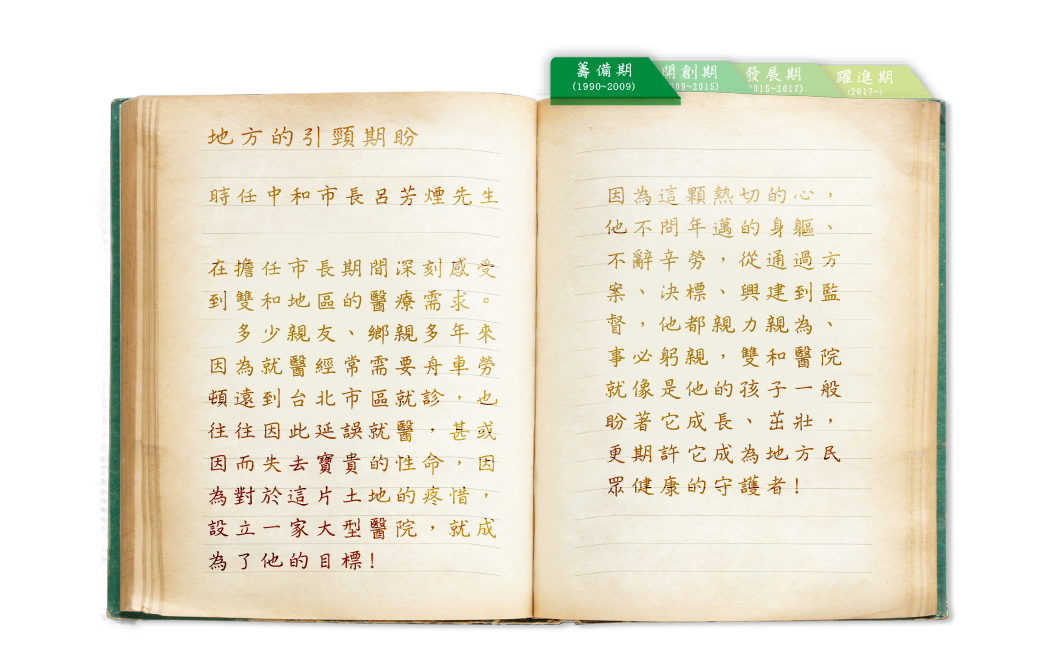 籌備期
(1990~2009)
開創期
09~2015)
發展期
015~2017)
躍進期
(2017~)
地方的引頸期盼
時任中和市長呂芳煙先生
在擔任市長期間深刻感受
到雙和地區的醫療需求。
多少親友、鄉親多年來
因為就醫經常需要舟車勞
頓遠到台北市區就診，也
往往因此延誤就醫，甚或
因而失去寶貴的性命，因
為對於這片土地的疼惜，
設立一家大型醫院，就成
為了他的目標!
因為這顆熱切的心，
他不問年邁的身軀、
不辭辛勞，從通過方
案、決標、興建到監
督，他都親力親為、
事必躬親，雙和醫院
就像是他的孩子一般
盼著它成長、茁壯，
更期許它成為地方民
眾健康的守護者!